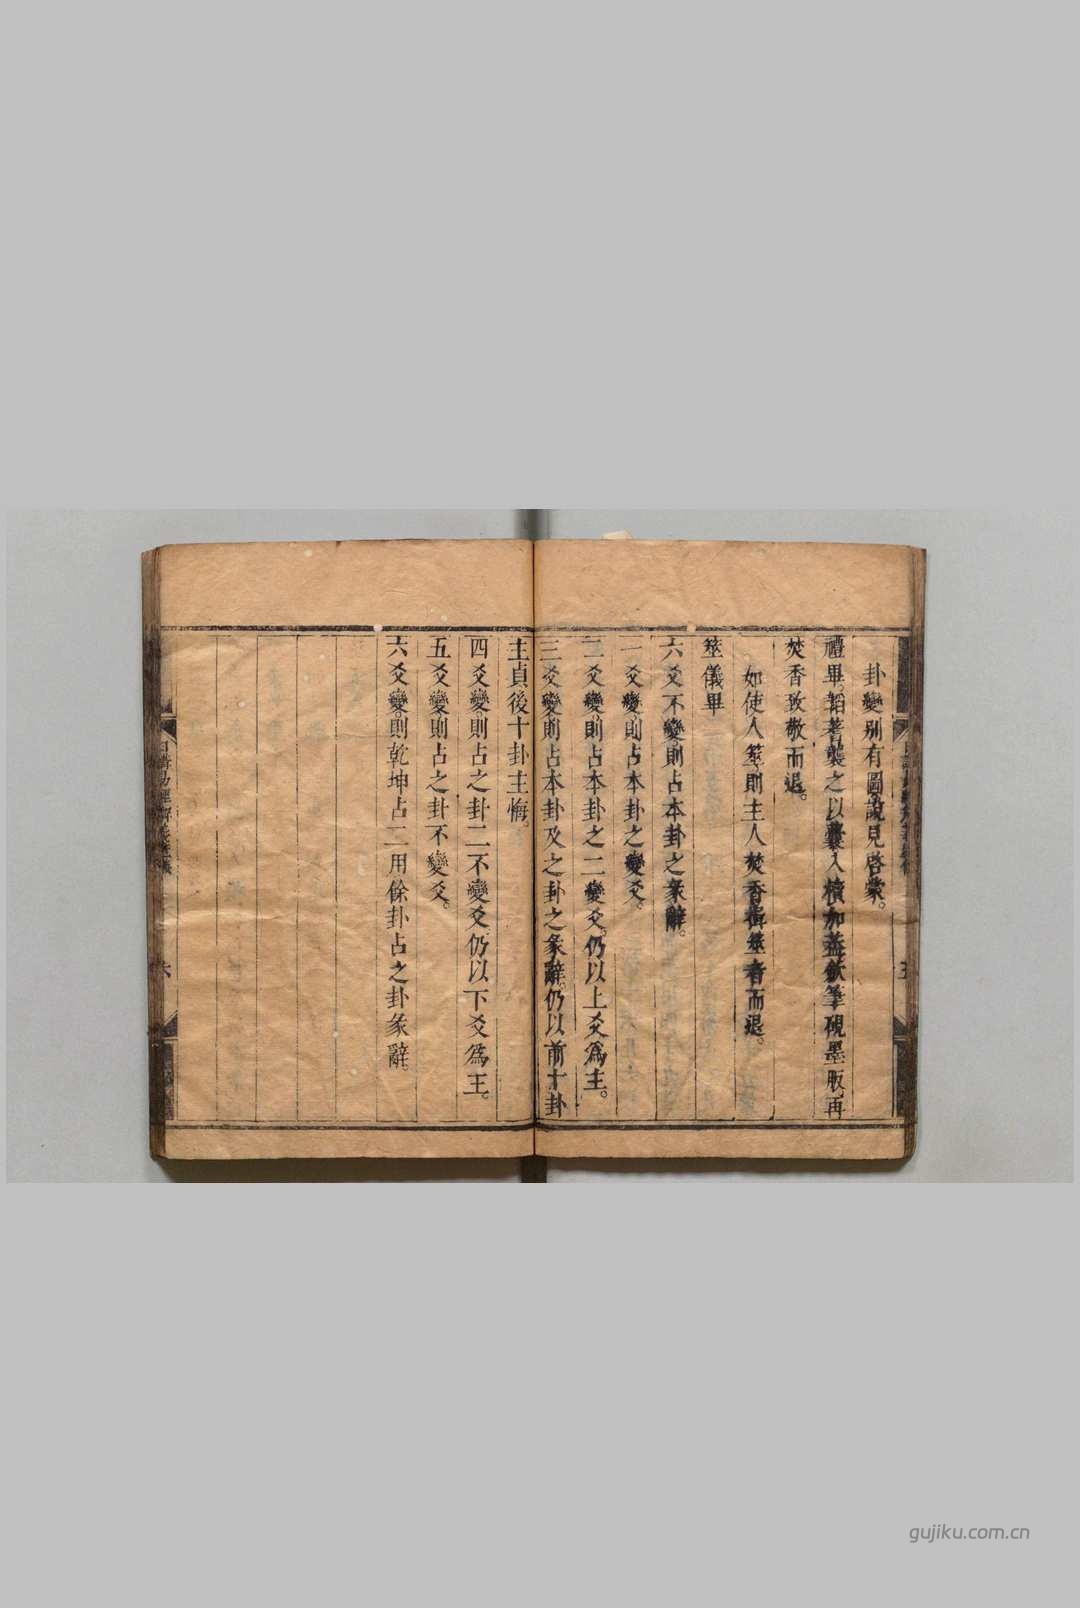 卦變別有圖說見啓蒙。
禮畢韜蓍襲之以囊入櫝加蓋斂筆硯墨版再
焚香致敬而退。
如使人筮則主人焚香揖筮者而退。
筮儀畢
六爻不變則占本卦之彖辭。
一爻變則占本卦之變爻。
二爻變則占本卦之二變爻。仍以上爻爲主。
三爻變則占本卦及之卦之彖辭。仍以前十卦
主貞後十卦主悔。
四爻變則占之卦二不變爻仍以下爻爲主。
五爻變則占之卦不變爻。
六爻變則乾坤占二用餘卦占之卦彖辭。
日講易經解義
六
gujiku.com.cn